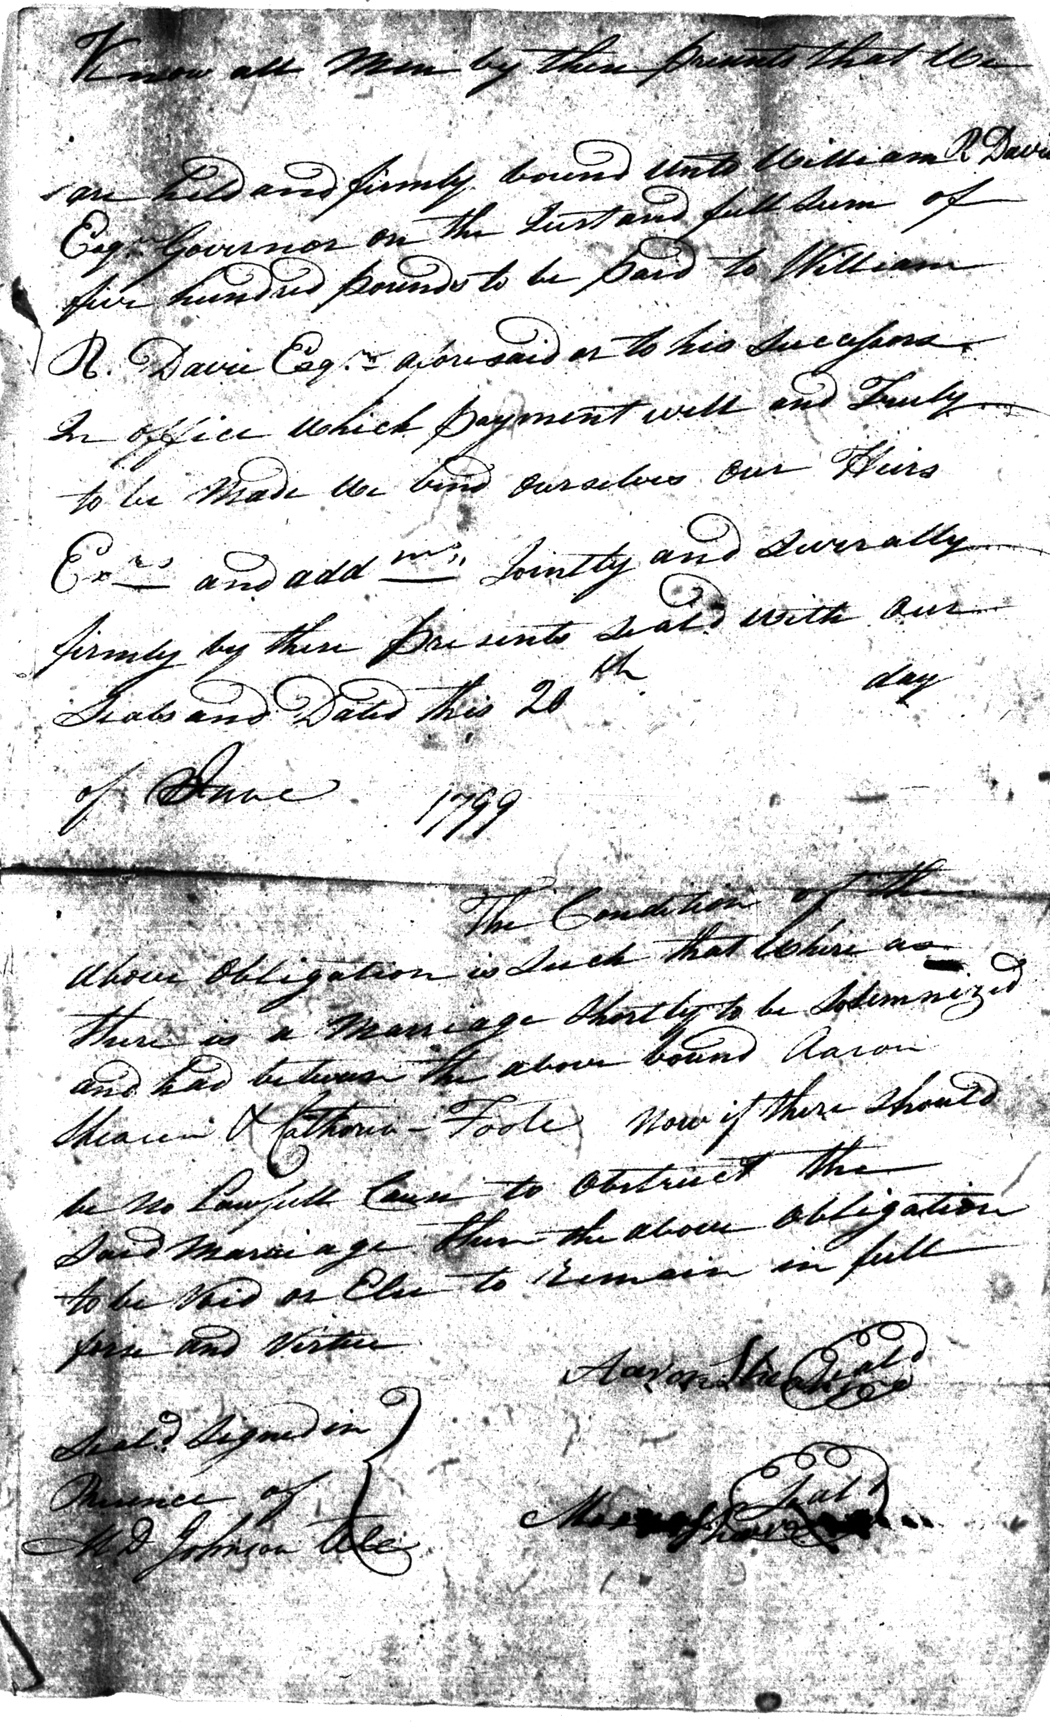 Know all Men by these presents that We
are held and firmly bound unto William R Davie
Esqr. Governor on the Just and full Sum of
five hundred pounds to be paid to William
R. Davie Esq.r aforesaid or to his Successors
In office which payment will and Truly
to be Made We bind ourselves our Heirs
Exrs and addms. Jointly and Severally
firmly by these presents Seald with our
Seals and Dated this 20th day
of June 1799
The Condition of the
above obligation is Such that Where as
there is a Marriage Shortly to be Solemnized
and had between the above bound Aaron
& Cathorin Foole Now if there Should
be No Lawfull Cause to obstruct the
Said Marriage then the above obligation
to be Void or Else to Remain in full
forse and Virtue
Aaron Seald
Seald Signed in
Presence of
Seald
M D Johnson